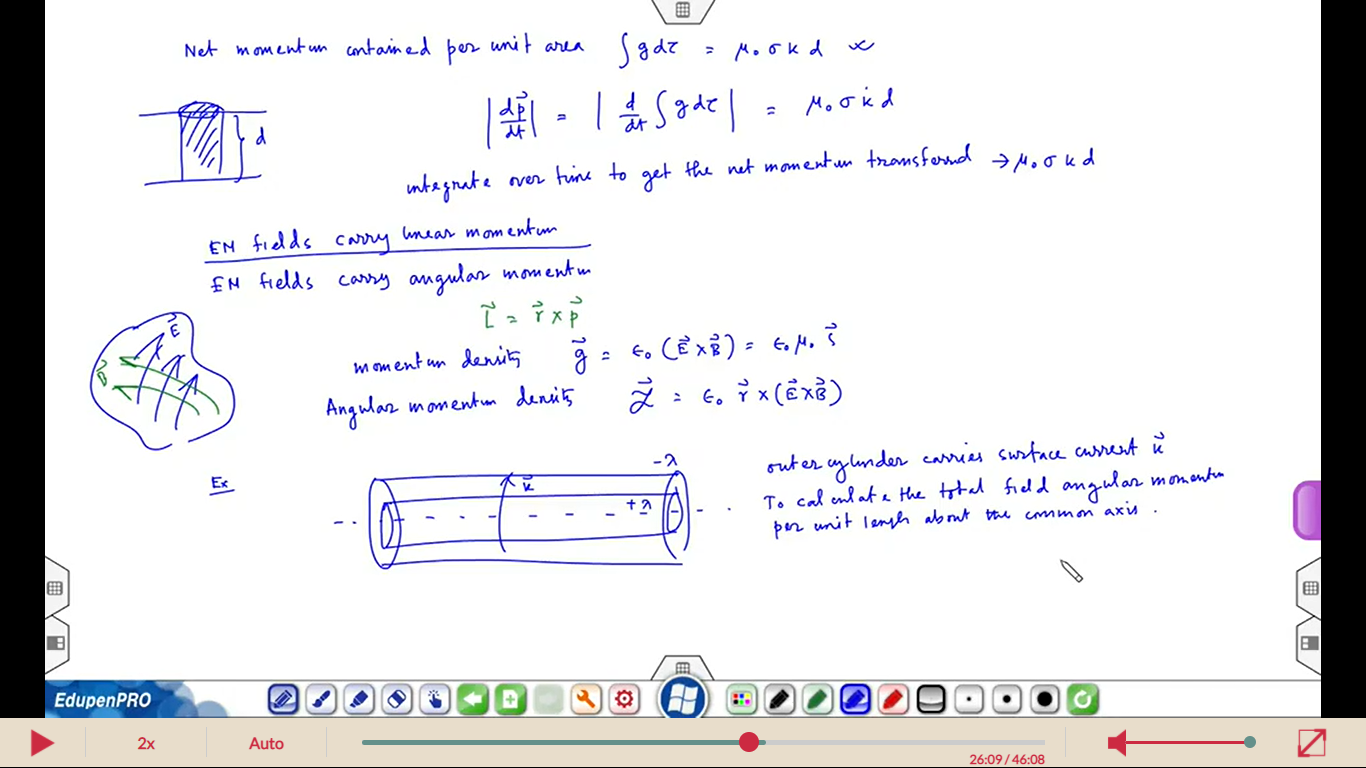 Net momentum contained per unit area ∫ g dτ = μ₀ σ k d
|dp⃗/dt| = |d/dt ∫ g dτ| = μ₀ σ k̇ d
d
integrate over time to get the net momentum transferred → μ₀ σ k d
EM fields carry linear momentum
EM fields carry angular momentum
L⃗ = r⃗ × p⃗
E⃗
B⃗
momentum density g⃗ = ϵ₀ (E⃗ × B⃗) = ϵ₀ μ₀ S⃗
Angular momentum density ℒ⃗ = ϵ₀ r⃗ × (E⃗ × B⃗)
Ex
-λ
k⃗
+λ
outer cylinder carries surface current k⃗
To calculate the total field angular momentum
per unit length about the common axis .
EdupenPRO
2x
Auto
26:09 / 46:08